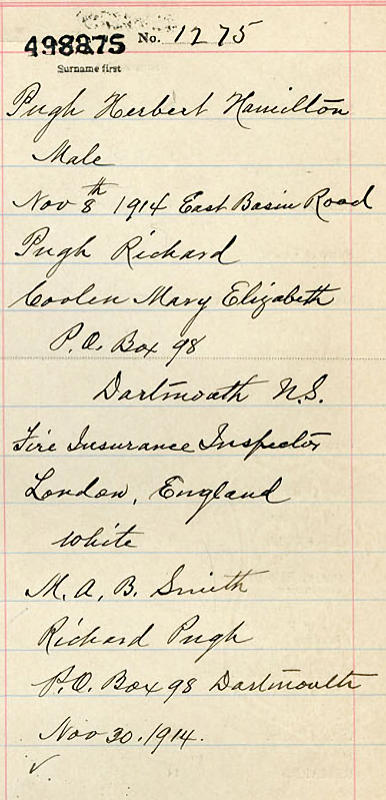 498875 No. 1275
Surname first
Pugh Herbert Hamilton
Male
Nov 8th 1914 East Basin Road
Pugh Richard
Coolen Mary Elizabeth
P.O. Box 98
Dartmouth N.S.
Fire Insurance Inspector
London, England
White
M. A. B. Smith
Richard Pugh
P.O. Box 98 Dartmouth
Nov 30. 1914.